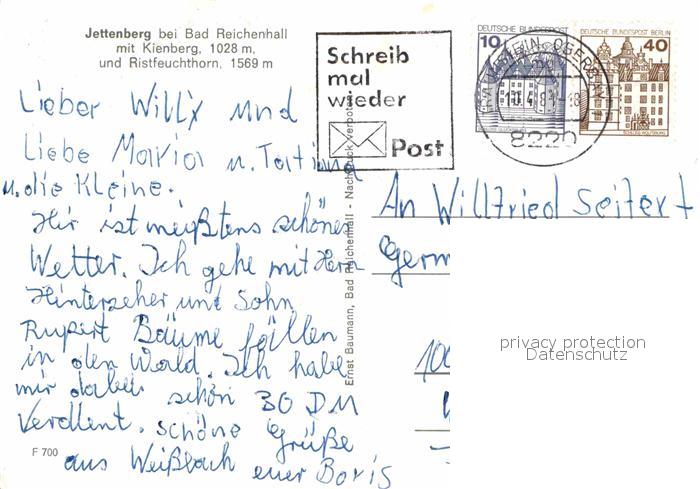 Jettenberg bei Bad Reichenhall
mit Kienberg, 1028 m,
und Ristfeuchthorn, 1569 m
Schreib
mal
wieder
Post
DEUTSCHE BUNDESPOST
10
DEUTSCHE BUNDESPOST BERLIN
40
SCHLOSS WOLFSBURG
8220
Lieber Willi und
Liebe Maria u. Tatiana
u. die Kleine.
Hir ist meißtens schönes
Wetter. Ich gehe mit Herr
Hinterseher und Sohn
Rupert Bäume fällen
in den Wald. Ich habe
mir dabei schon 30 DM
verdient. schöne Grüße
aus Weißbach euer Boris
F 700
Ernst Baumann, Bad Reichenhall - Nachdruck verboten
An Willfried Seifert
Germ
100
privacy protection
Datenschutz